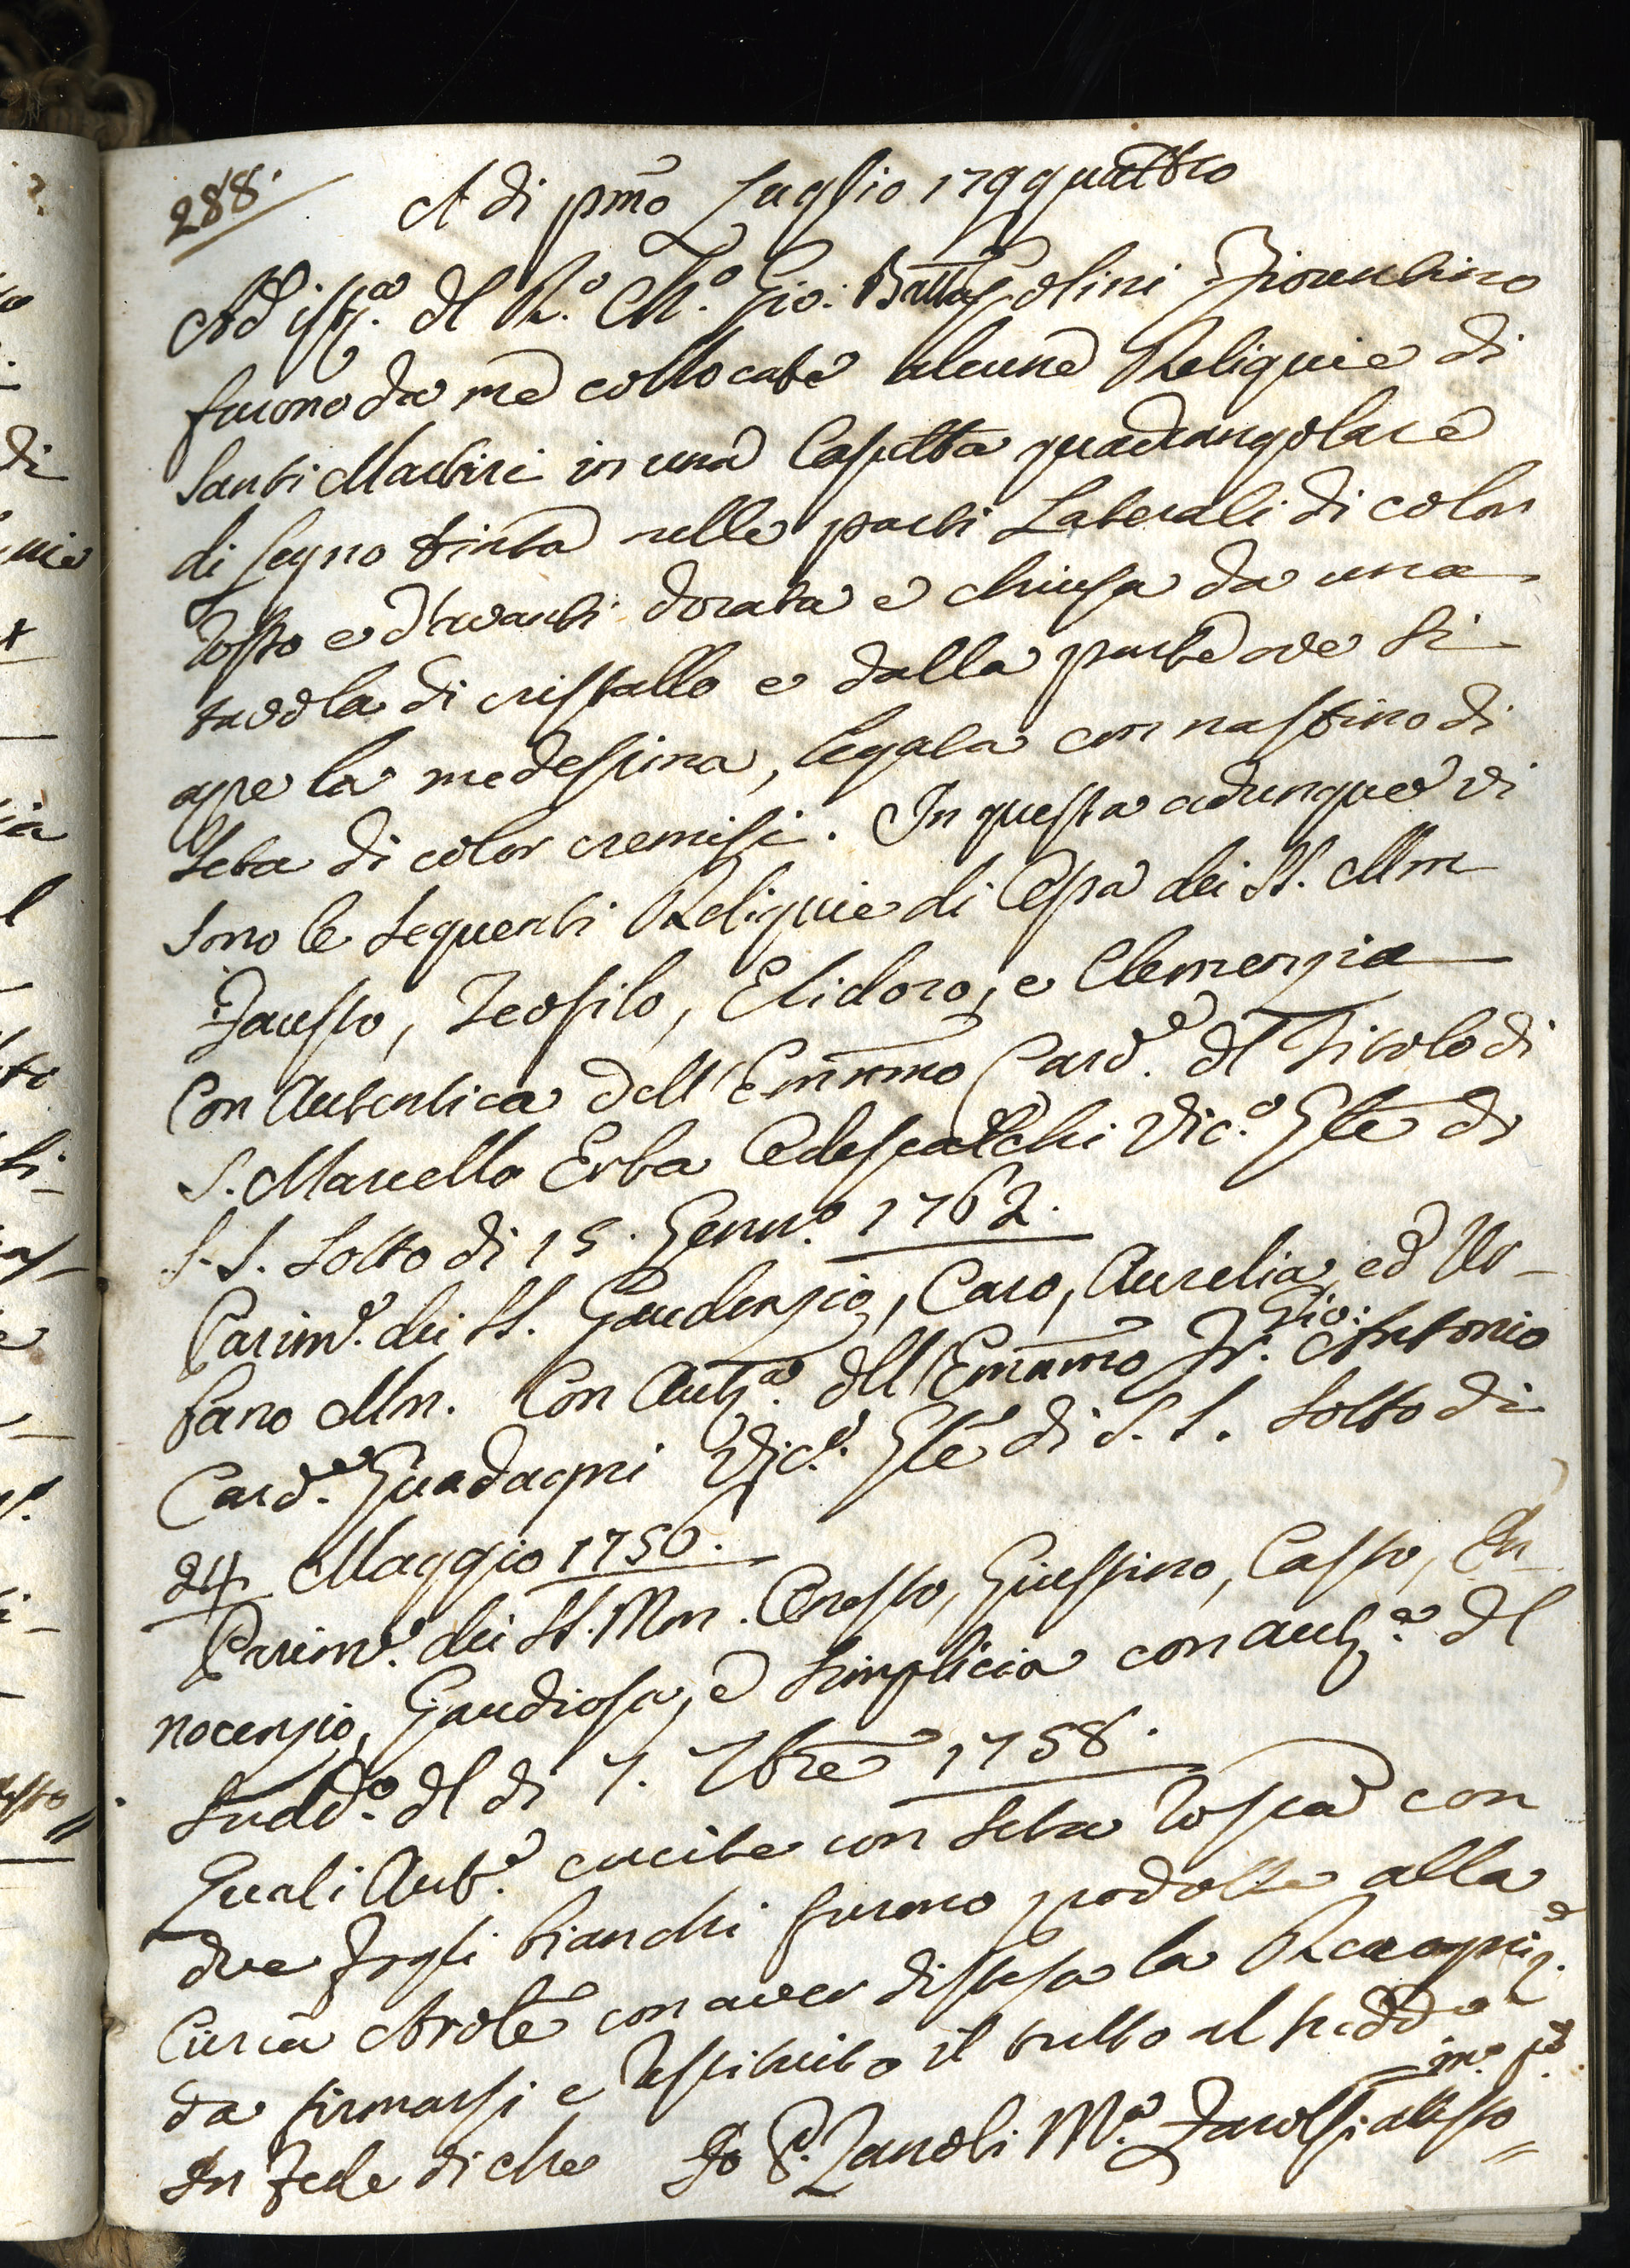 288.
A di pmo Luglio 179quattro
Ad istza. dl R.o Ch.o Gio: Batta Fiorentino
furono da me collocate alcune Reliquie di
Santi Martiri in una Casetta quadrangolare
di legno tinta nelle parti Laterali di color
rosso e d'avanti dorata e chiusa da una
tavola di cristallo e dalla parte ove si
apre la medesima, legata con nastino di
seta di color cremisi. In questa adunque vi
sono le seguenti Reliquie di Ossa dei SS. Mm
Fausto, Teofilo, Elidoro, e Clemenzia
Con Autentica dell'Eminmo Card.e dl Titolo di
S. Marcello Erba Odescalchi Vic.o Gle di
S.S. sotto di 15. Genn.o 1762.
Parim.e dei SS. Gaudenzio, Caro, Aurelia, ed Ur-
bano Mm. Con Autca. dll'Eminmo Fr. Gio: Antonio
Card.e Guadagni Vic.o Gle di S.S. sotto di
24 Maggio 1756.
Parim.e dei SS. Mm. Onesto, Giustino, Casto, In-
nocenzio, Gaudiosa, e Simplicia con autca. dl
Sudd.o dl di 7. 7bre 1758.
Quali Aut.e cucite con seta rossa con
due fogli bianchi furono prodotte alla
Curia Arvle con aver distesa la Recogniz.e
da firmarsi e restituito il tutto al sudd.o
In Fede di che Io P. Zanobi M.a Farolfi attesto
m.o p.a